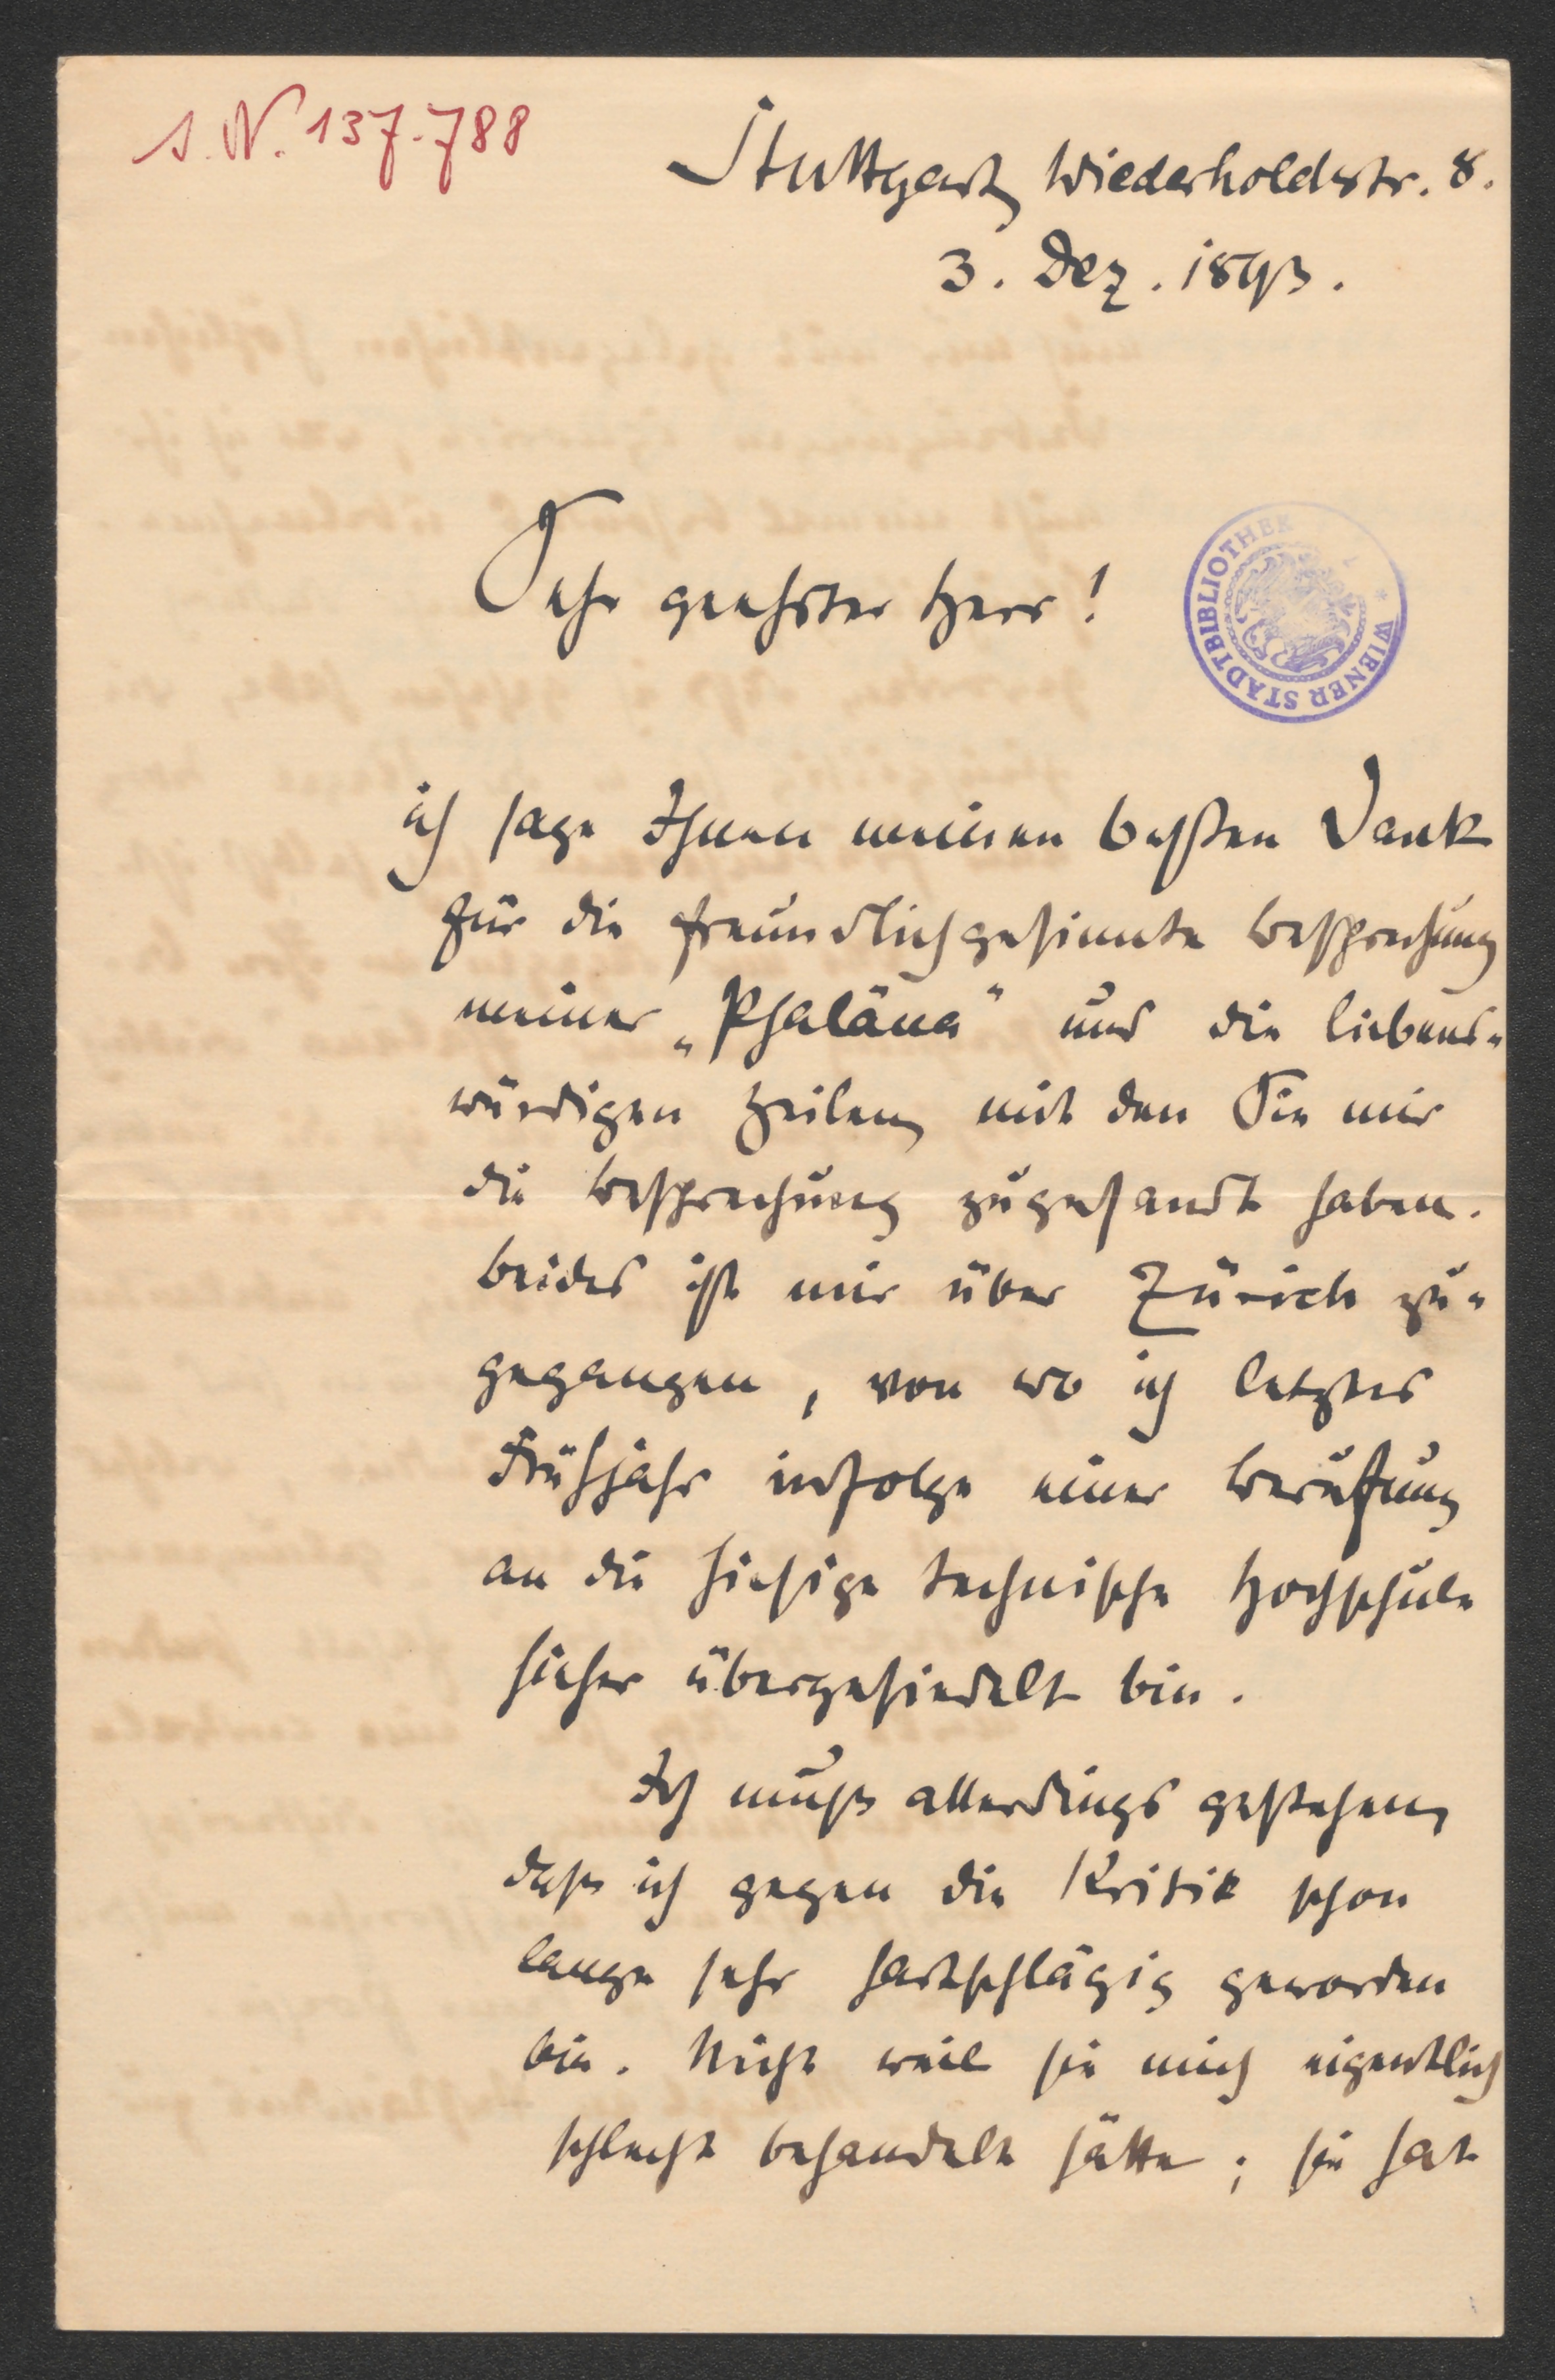 I. N. 137.788
Stuttgart, Wiederholdstr. 8.
3. Dez. 1893.
Sehr geehrter Herr!
WIENER STADTBIBLIOTHEK
ich sage Ihnen meinen besten Dank
für die freundlichgesinnte Besprechung
meiner „Phaläna" und die liebens-
würdigen Zeilen, mit den Sie mir
die Besprechung zugesandt haben.
Beides ist mir über Zürich zu-
gegangen, von wo ich letztes
Frühjahr infolge einer Berufung
an die hiesige technische Hochschule
hieher übergesiedelt bin.
Ich muß allerdings gestehen,
daß ich gegen die Kritik schon
lange sehr hartschlägig geworden
bin. Nicht weil sie mich eigentlich
schlecht behandelt hätte; sie hat